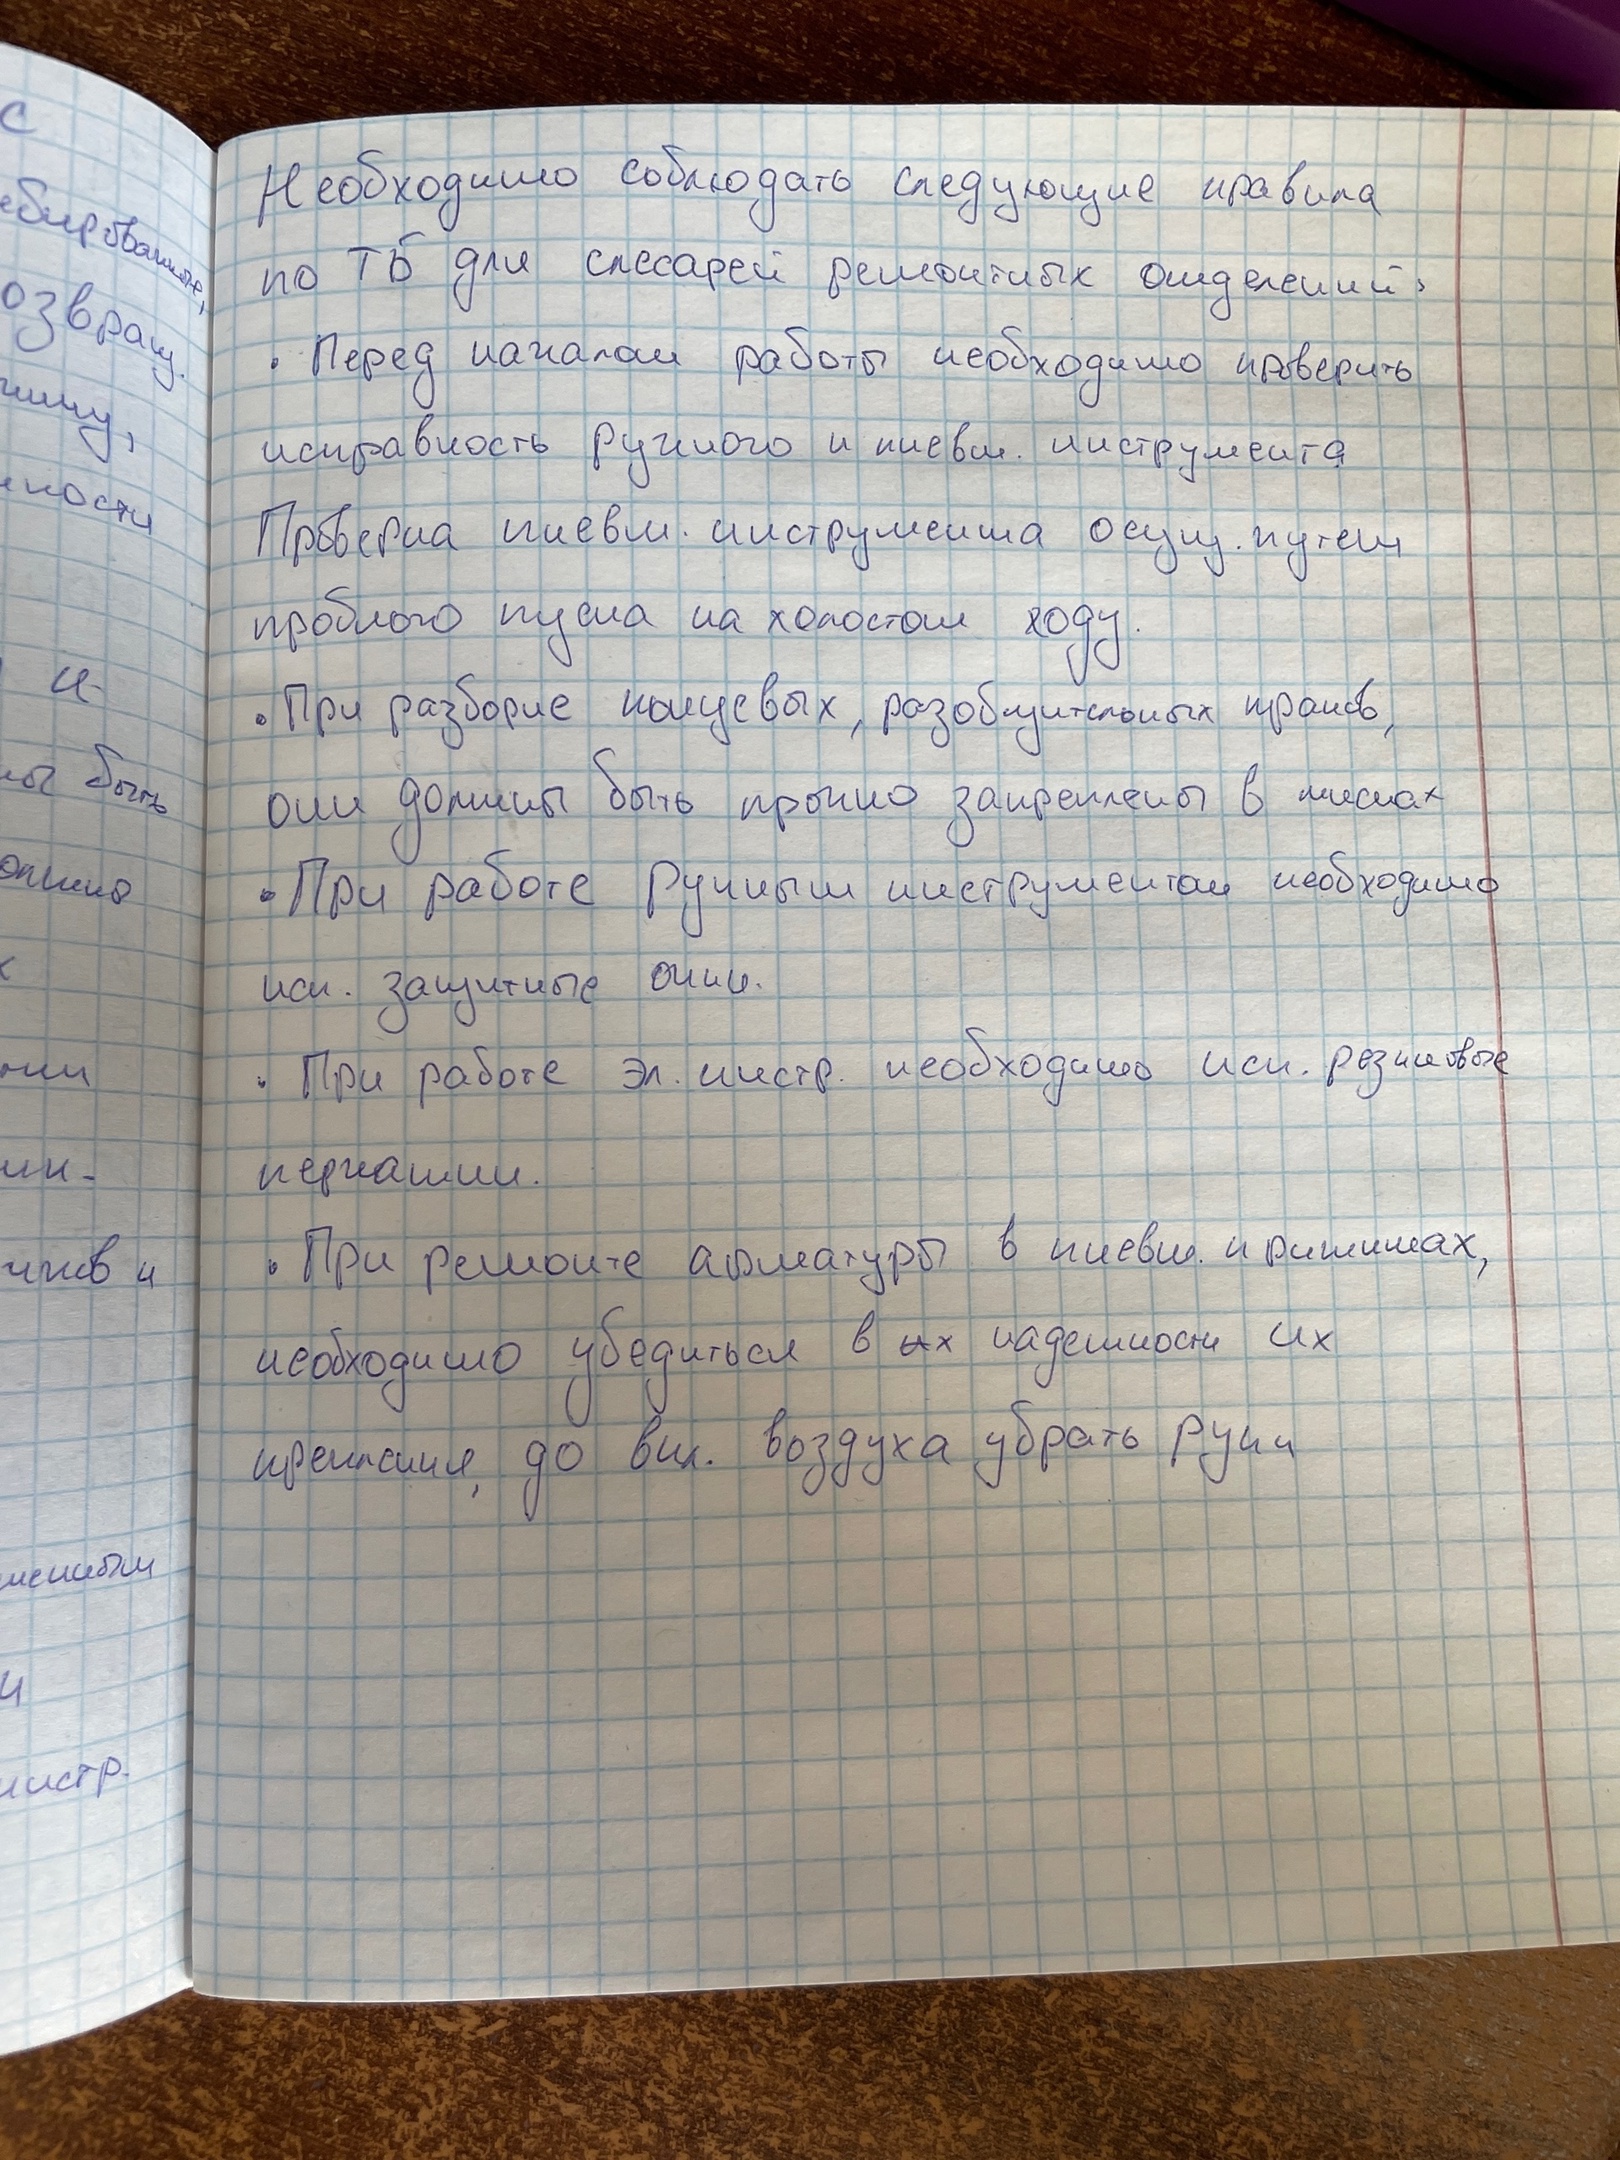 Необходимо соблюдать следующие правила
по ТБ для слесарей ремонтных отделений:
• Перед началом работы необходимо проверить
исправность ручного и пневм. инструмента
Проверка пневм. инструмента осущ. путем
пробного пуска на холостом ходу.
• При разборке концевых, разобщительных кранов,
они должны быть прочно закреплены в тисках
• При работе ручным инструментом необходимо
исп. защитные очки.
• При работе эл. инстр. необходимо исп. резиновые
перчатки.
• При ремонте арматуры в пневм. прижимах,
необходимо убедиться в их надежности их
крепления, до вкл. воздуха убрать руки
с
возвращ.
ности
и
ны быть
х
и
инстр.